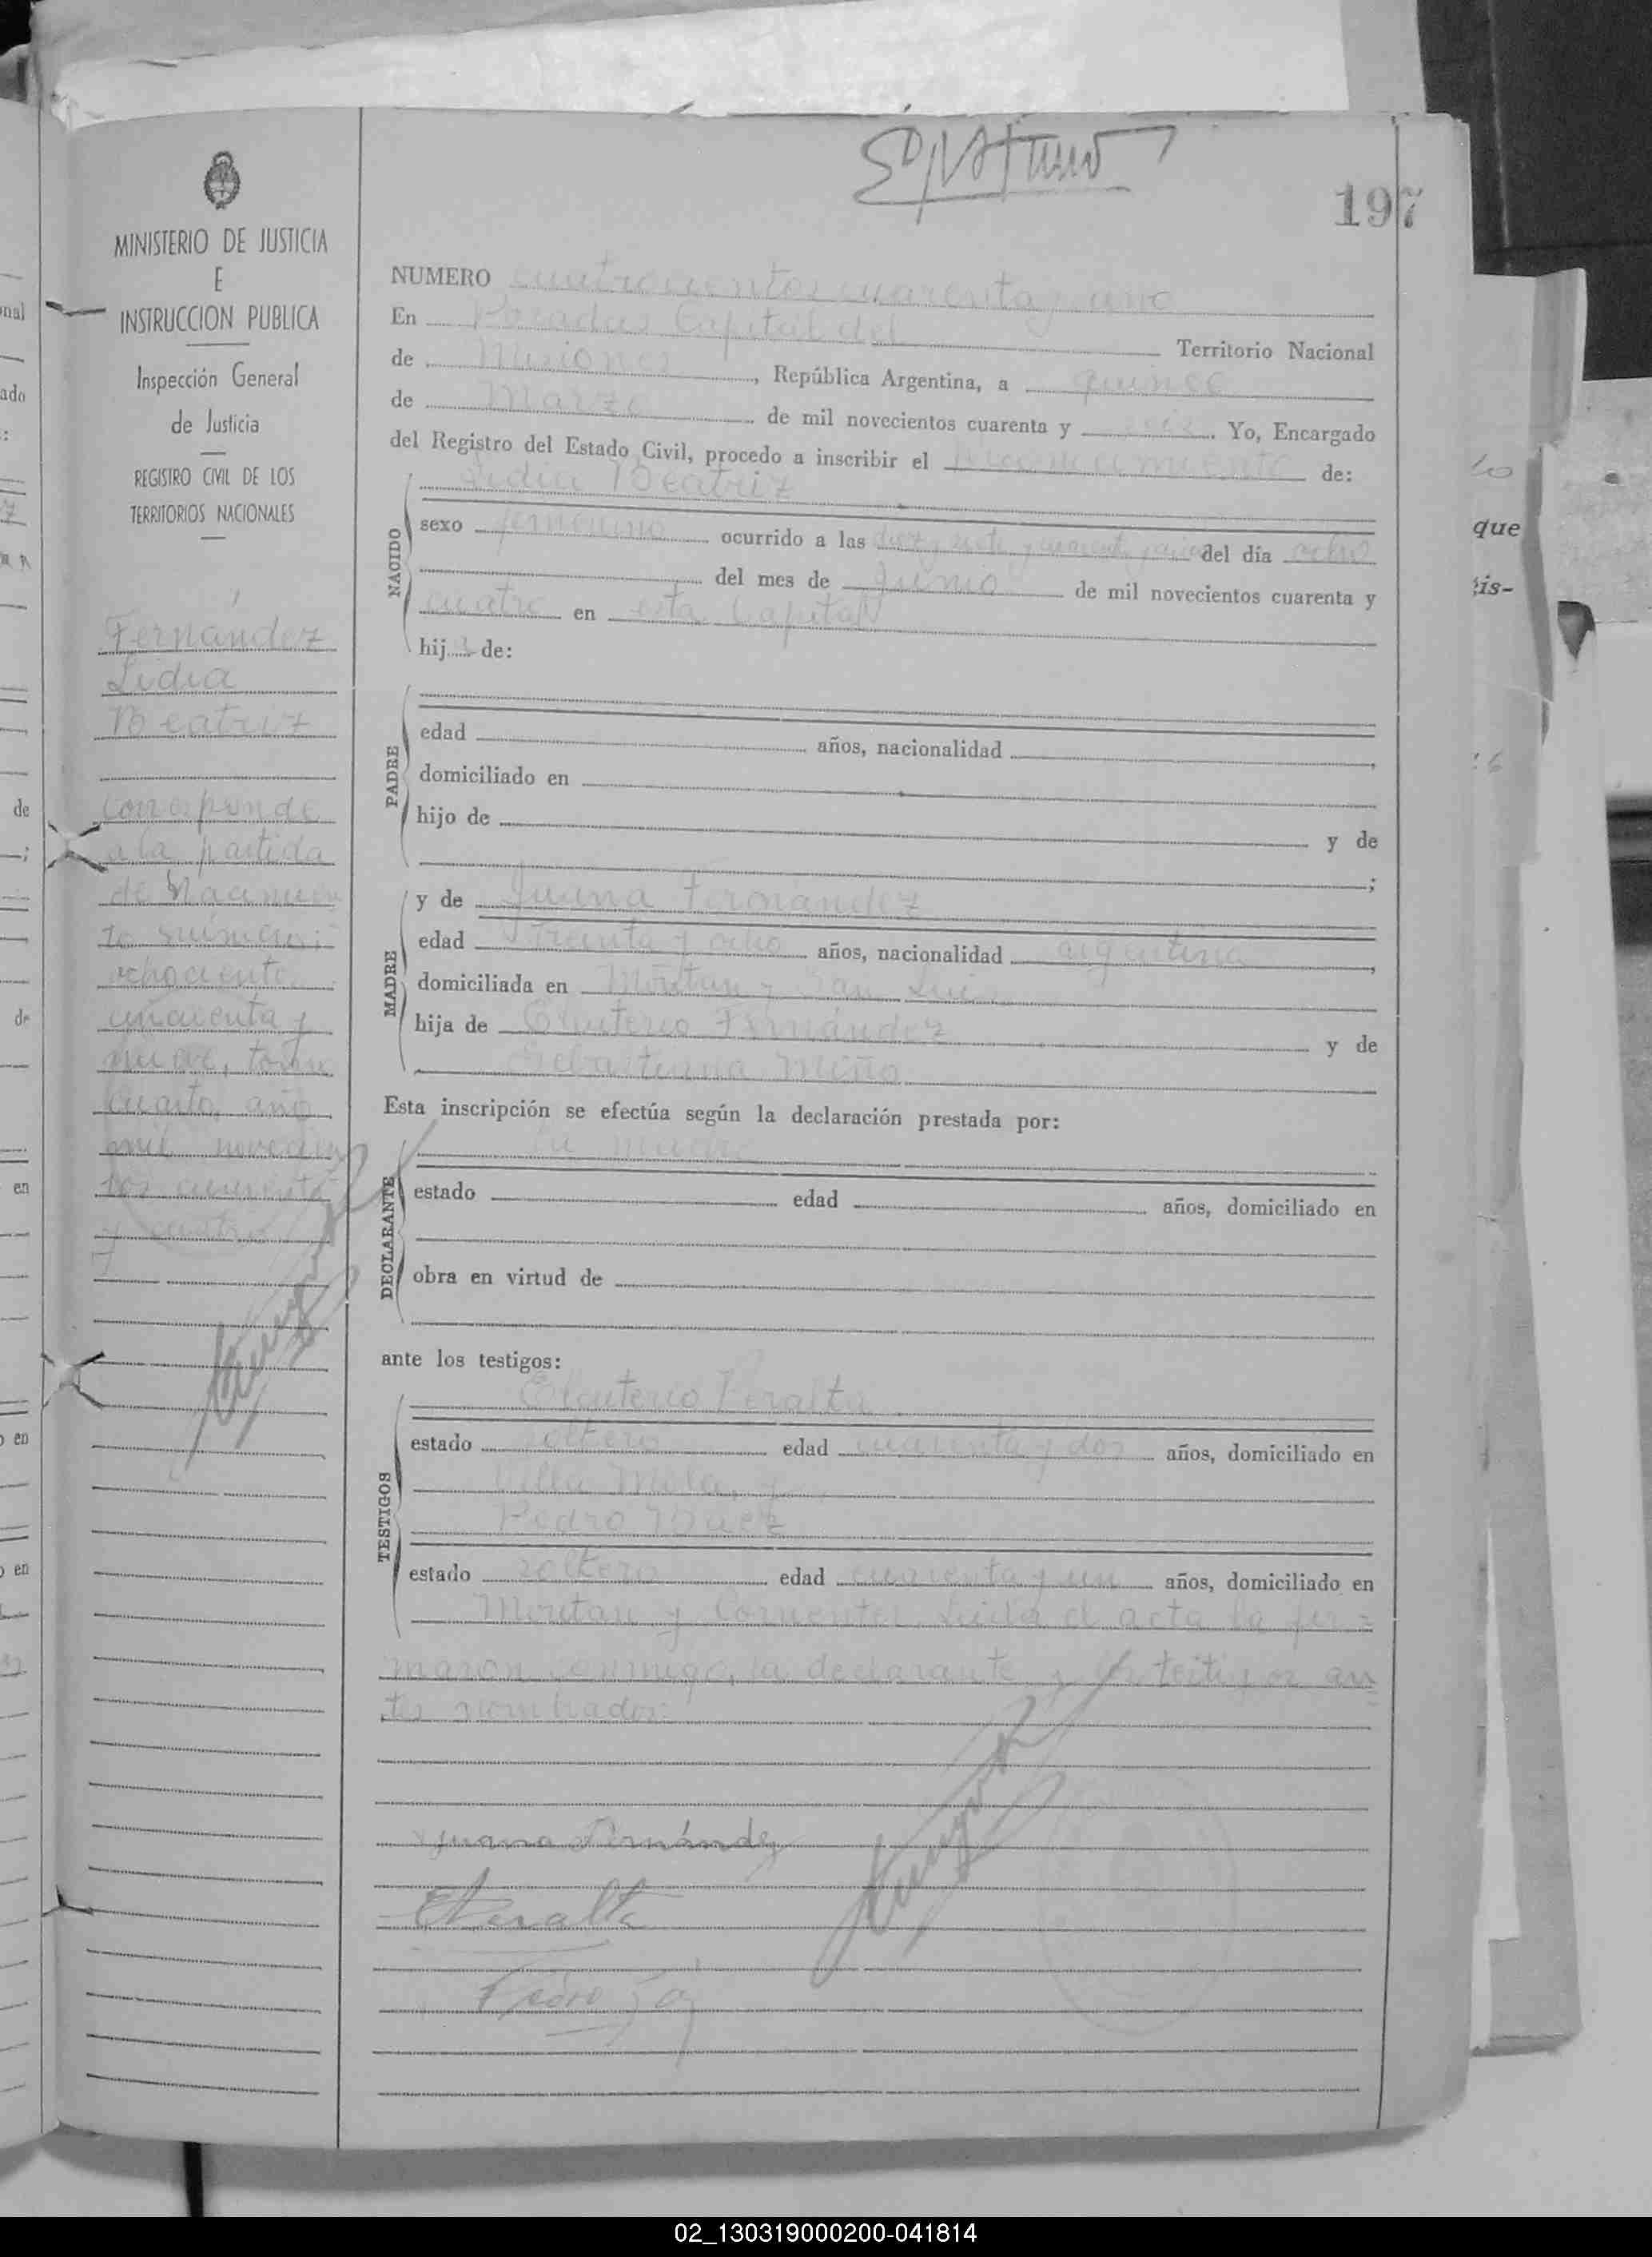 197
MINISTERIO DE JUSTICIA
E
INSTRUCCION PUBLICA
Inspección General
de Justicia
REGISTRO CIVIL DE LOS
TERRITORIOS NACIONALES
Fernández
Lidia
Beatriz
corresponde
a la partida
de Nacimien
to número:
ochociento
cincuenta y
nueve, tomo
cuarto, año
mil novecien
tos cuarenta
y cuatro
NUMERO cuatrocientos cuarenta y uno
En Posadas Capital del Territorio Nacional
de Misiones, República Argentina, a quince
de Marzo de mil novecientos cuarenta y Yo, Encargado
del Registro del Estado Civil, procedo a inscribir el Reconocimiento de:
NACIDO
Lidia Beatriz
sexo femenino ocurrido a las diez y siete y cuarenta del día ocho
del mes de Junio de mil novecientos cuarenta y
cuatro en esta Capital
hija de:
PADRE
edad años, nacionalidad
domiciliado en
hijo de y de
;
MADRE
y de Juana Fernández
edad treinta y ocho años, nacionalidad argentina,
domiciliada en Moritan y San Luis
hija de Eleuterio Fernández y de
Sebastiana Miño
Esta inscripción se efectúa según la declaración prestada por:
DECLARANTE
la madre
estado edad años, domiciliado en
obra en virtud de
ante los testigos:
TESTIGOS
Eleuterio Peralta
estado soltero edad cuarenta y dos años, domiciliado en
Villa Mola, y
Pedro Baez
estado soltero edad cuarenta y un años, domiciliado en
Moritan y Corrientes Leida el acta la fir=
maron conmigo, la declarante y los testigos an
tes nombrados:
Juana Fernández
E Peralta
Pedro
que
02_130319000200-041814